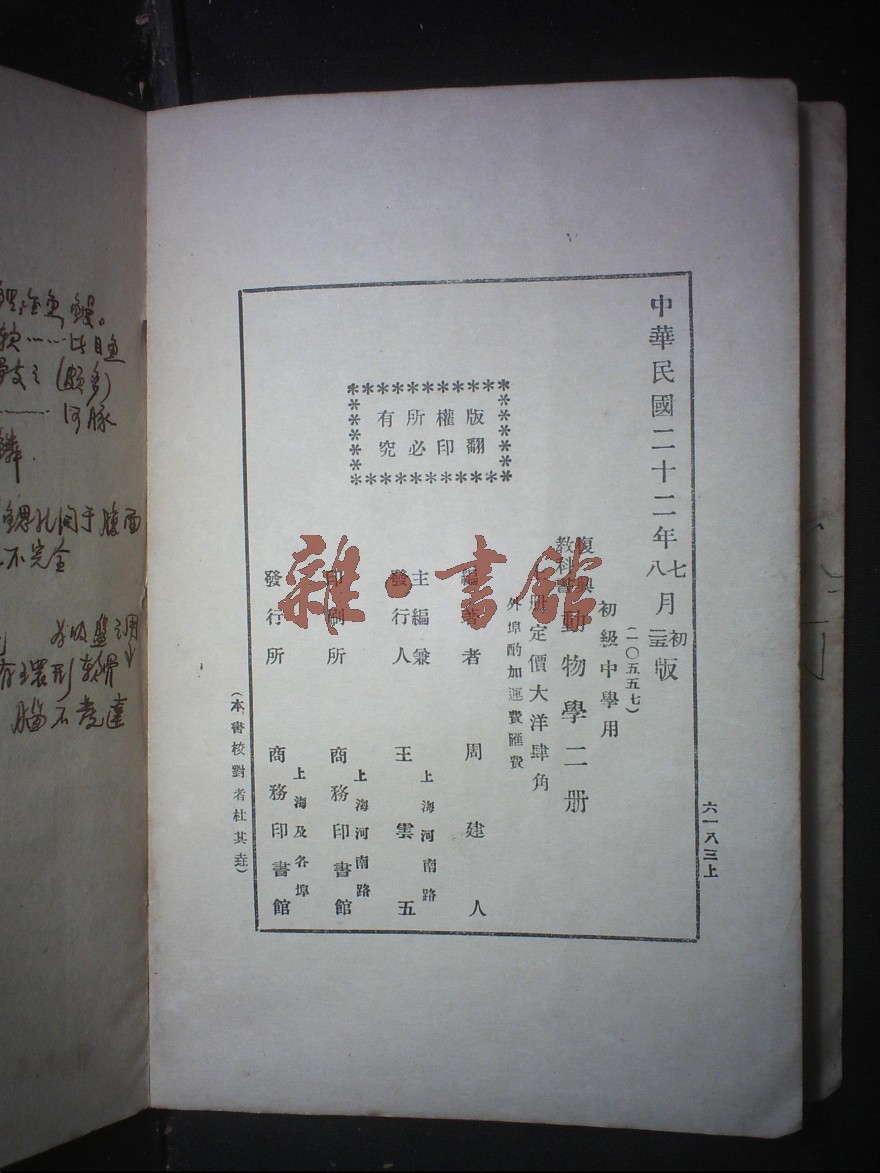 中華民國二十二年七月初版
八
六一八三上
(一〇五五七)
初級中學用
復興教科書動物學二册
册定價大洋肆角
外埠酌加運費匯費
版權所有
翻印必究
編著者 周建人
主編兼發行人 王雲五
上海河南路
印刷所 商務印書館
上海河南路
發行所 商務印書館
上海及各埠
(本書校對者杜其垚)
雜·書館
金魚 鰻。
比目魚
(頗多)
河豚
鱗.
鰓孔開于腹面
不完全
環形軟骨
腦不發達